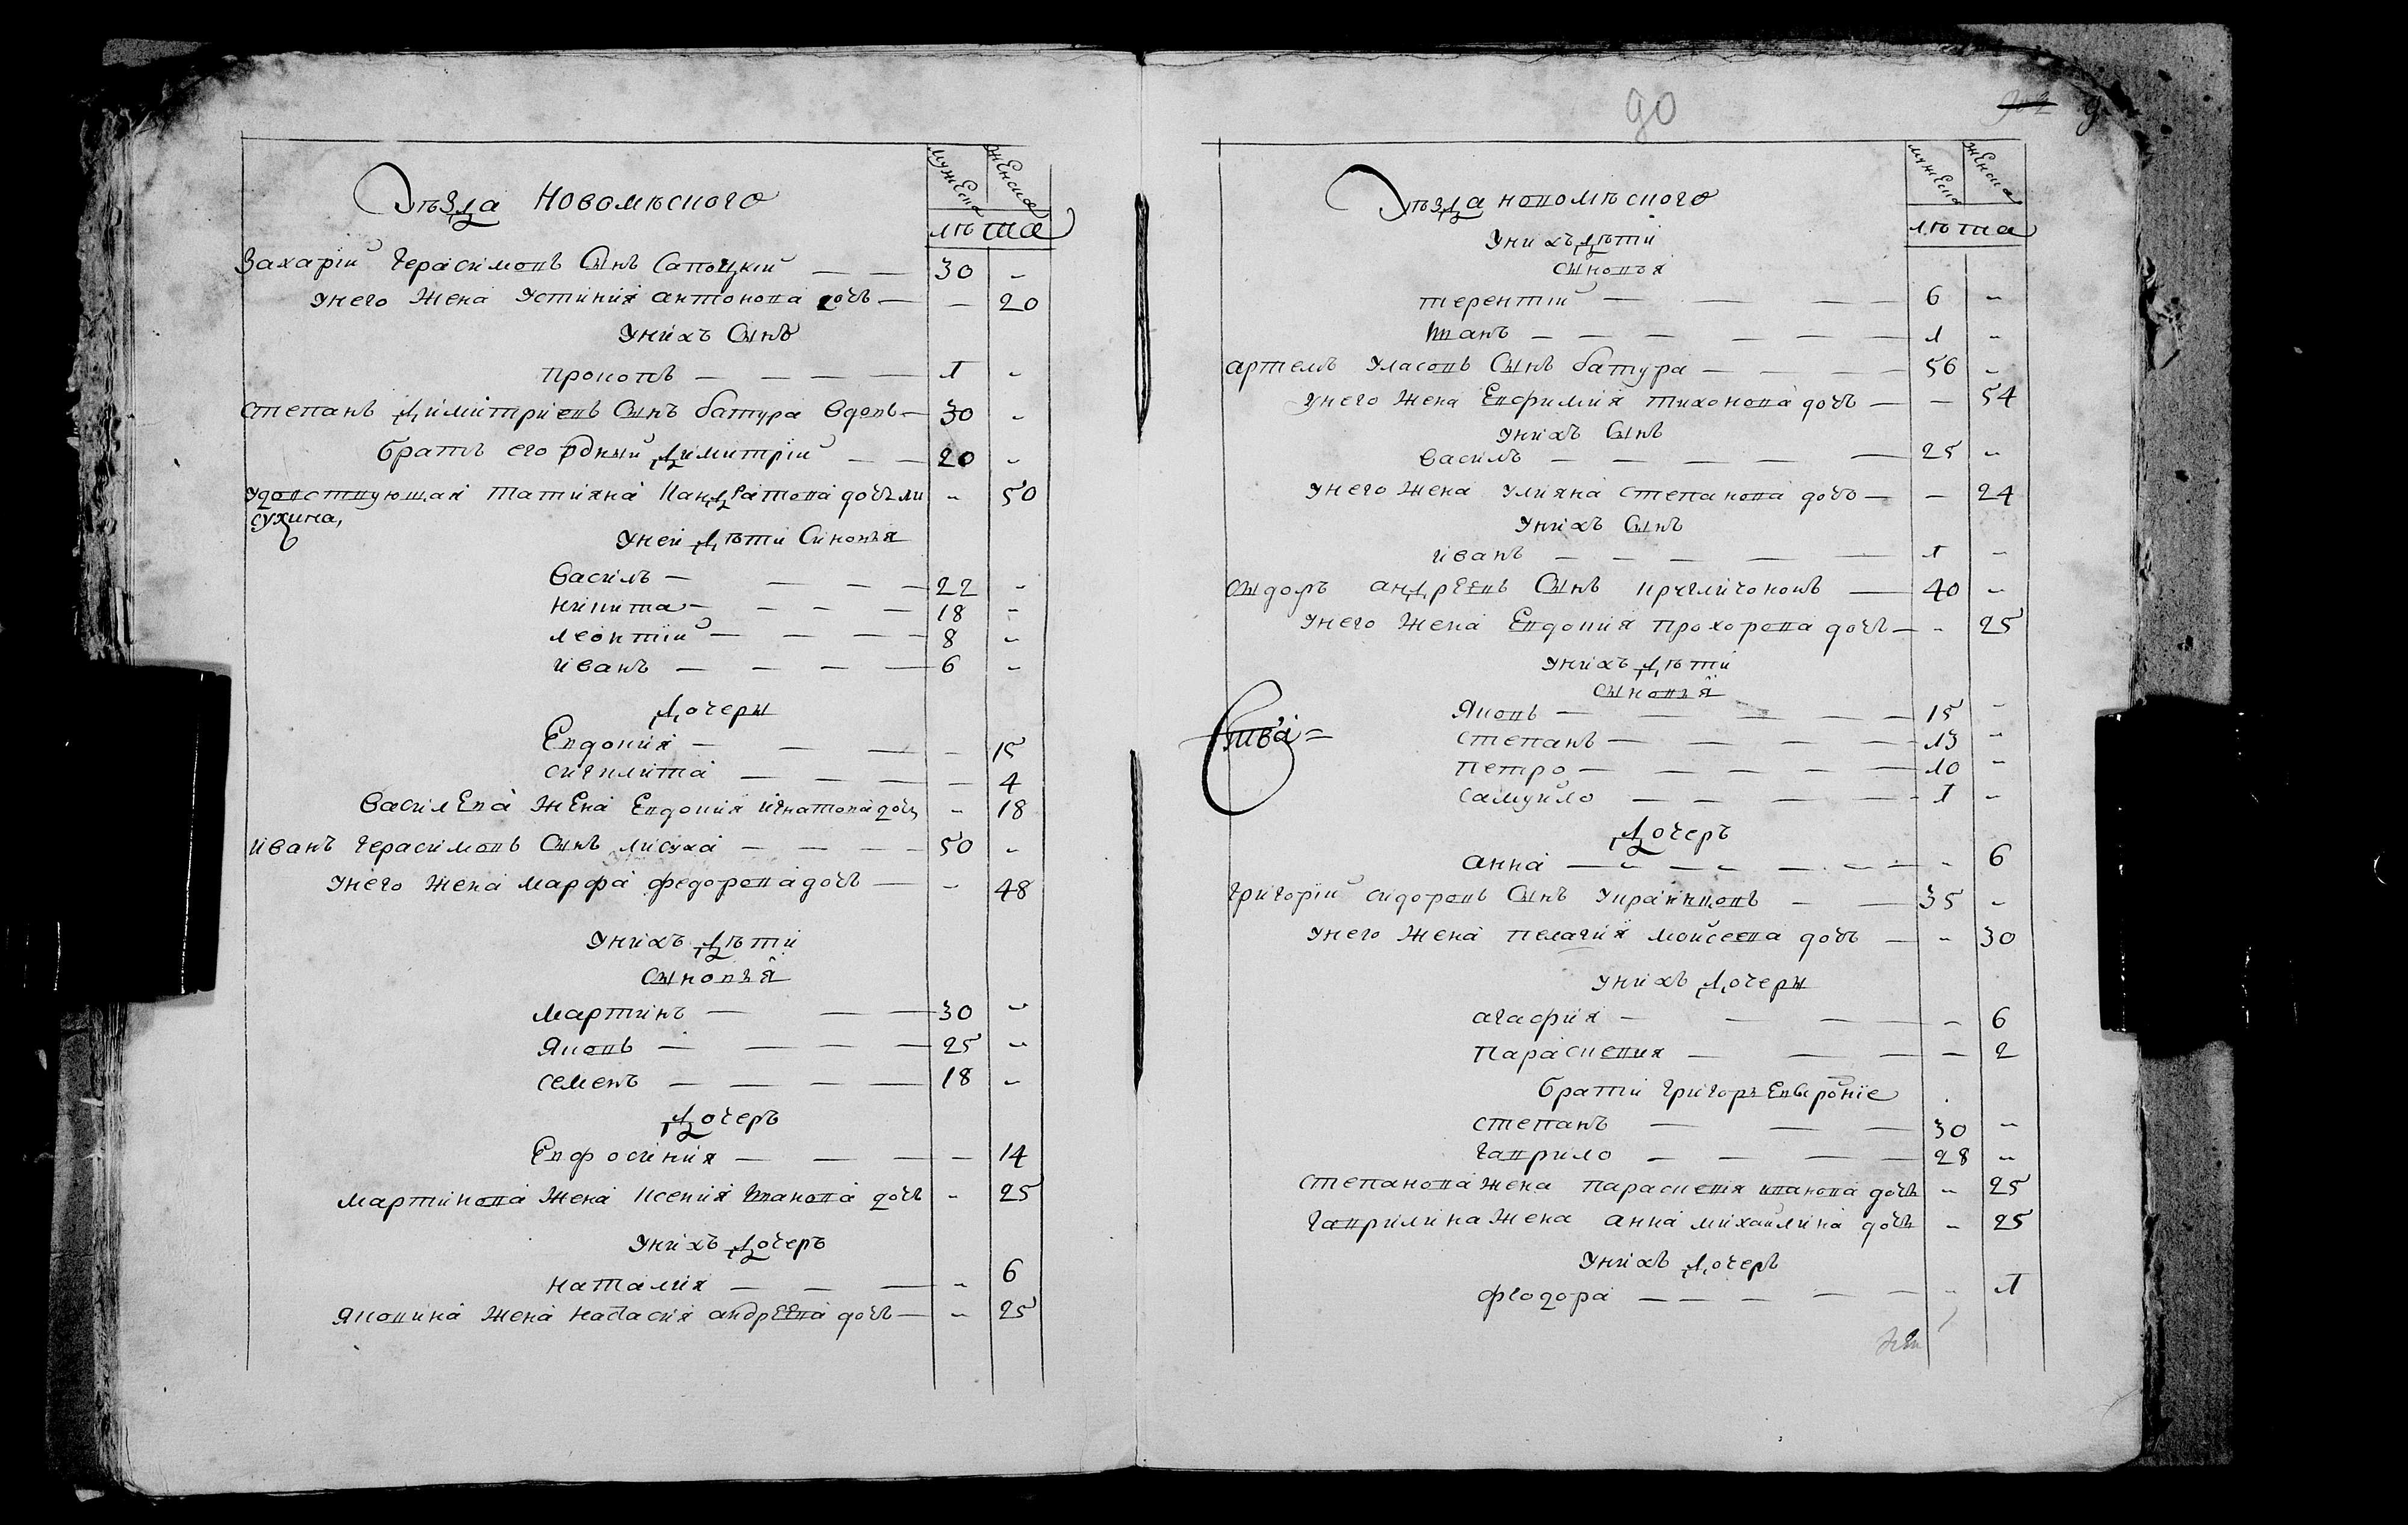 уѣзда Новомѣского
мужеска
женска
лѣта
Захарій Герасимовъ Сынъ Сапоцкій — — 30 -
Унего Жена Устинія антонова дочь — — 20
Унихъ Сынъ
Прокопъ — — — — 1 -
Степанъ Димитріевъ Сынъ батура Вдовъ — 30 -
братъ его рдный Димитрій — — 20 -
Удовствующая Татияна Кандратова дочь ли - 50
сухина,
Уней Дѣти Синовья
Василь — — — — 22 -
Никита — — — — 18 -
леонтій — — — — 8 -
иванъ — — — — 6 -
Дочеры
Евдокия — — — — 15
сиглита — — — — 4
Василева Жена Евдокия игнатова дочь - 18
иванъ Герасимовъ Сынъ лисуха — — — — 50 -
Унего Жена Марфа федорова дочь — - 48
Унихъ Дѣти
Сыновья
мартинъ — — — 30 -
Яковъ — — — — 25 -
семенъ — — — — 18 -
Дочерь
Евфосиния — — — — 14
мартинова Жена ксения иванова дочь - 25
Унихъ Дочерь
наталия — — — - 6
Яковина Жена настасия андреева дочь — - 25
90
уѣзда новомѣского
мужеска
женска
лѣта
Унихъ Дѣти
сыновья
терентій — — — 6 -
иванъ — — — — — — 1 -
артемъ Уласовъ Сынъ батура — — — — 56 -
Унего Жена Евфимия тихонова дочь — — 54
Унихъ Сынъ
Василь — — — — — 25 -
Унего Жена Улияна степанова дочь — — 24
Унихъ Сынъ
иванъ — — — — — 1 -
Сыдоръ андреевъ Сынъ — 40 -
Унего Жена Евдокия Прохорова дочь — - 25
Унихъ Дѣти
сыновья
Яковъ — — — — — 15 -
степанъ — — — — — 13 -
петро — — — — — 10 -
самуйло — — — — - 1 -
Дочерь
анна — — — — — - 6
григорій сидоровъ Сынъ Украинцовъ — — 35 -
Унего Жена пелагия мойсеева дочь — - 30
Унихъ Дочеры
агафия — — — — - 6
Параскевия — — — — 2
братіи Григорьевы рочніе
степанъ — — — 30 -
гаврило — — — — 28 -
степанова Жена параскевия иванова дочь - 25
гаврилина Жена анна михайлина дочь - 25
Унихъ Дочерь
феодора — — — — — - 1